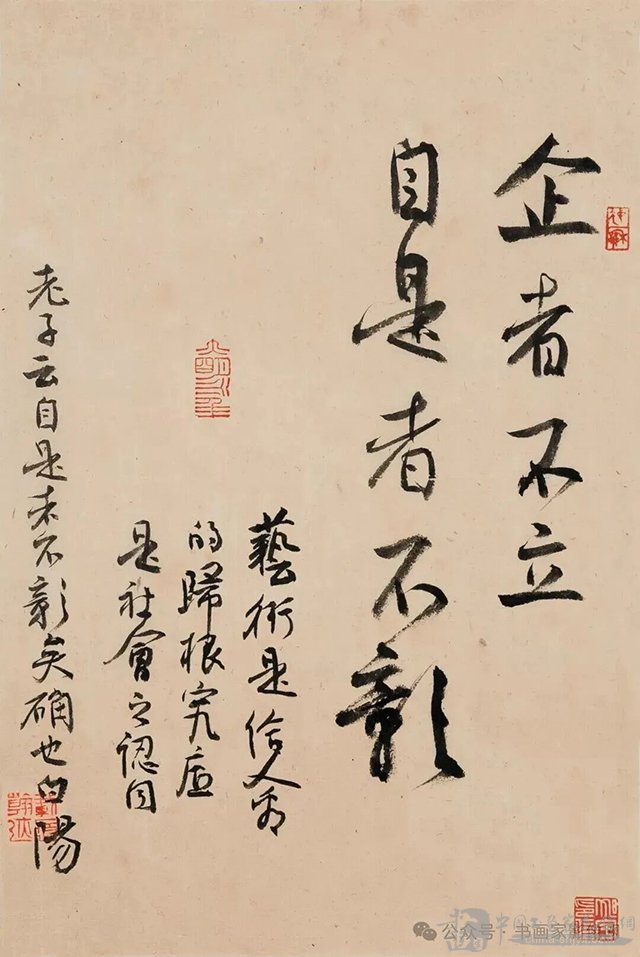 企者不立
自是者不彰
藝術是给人看
的歸根究底
是社會之認同
老子云自是者不彰矣确也白陽
公众号·书画家